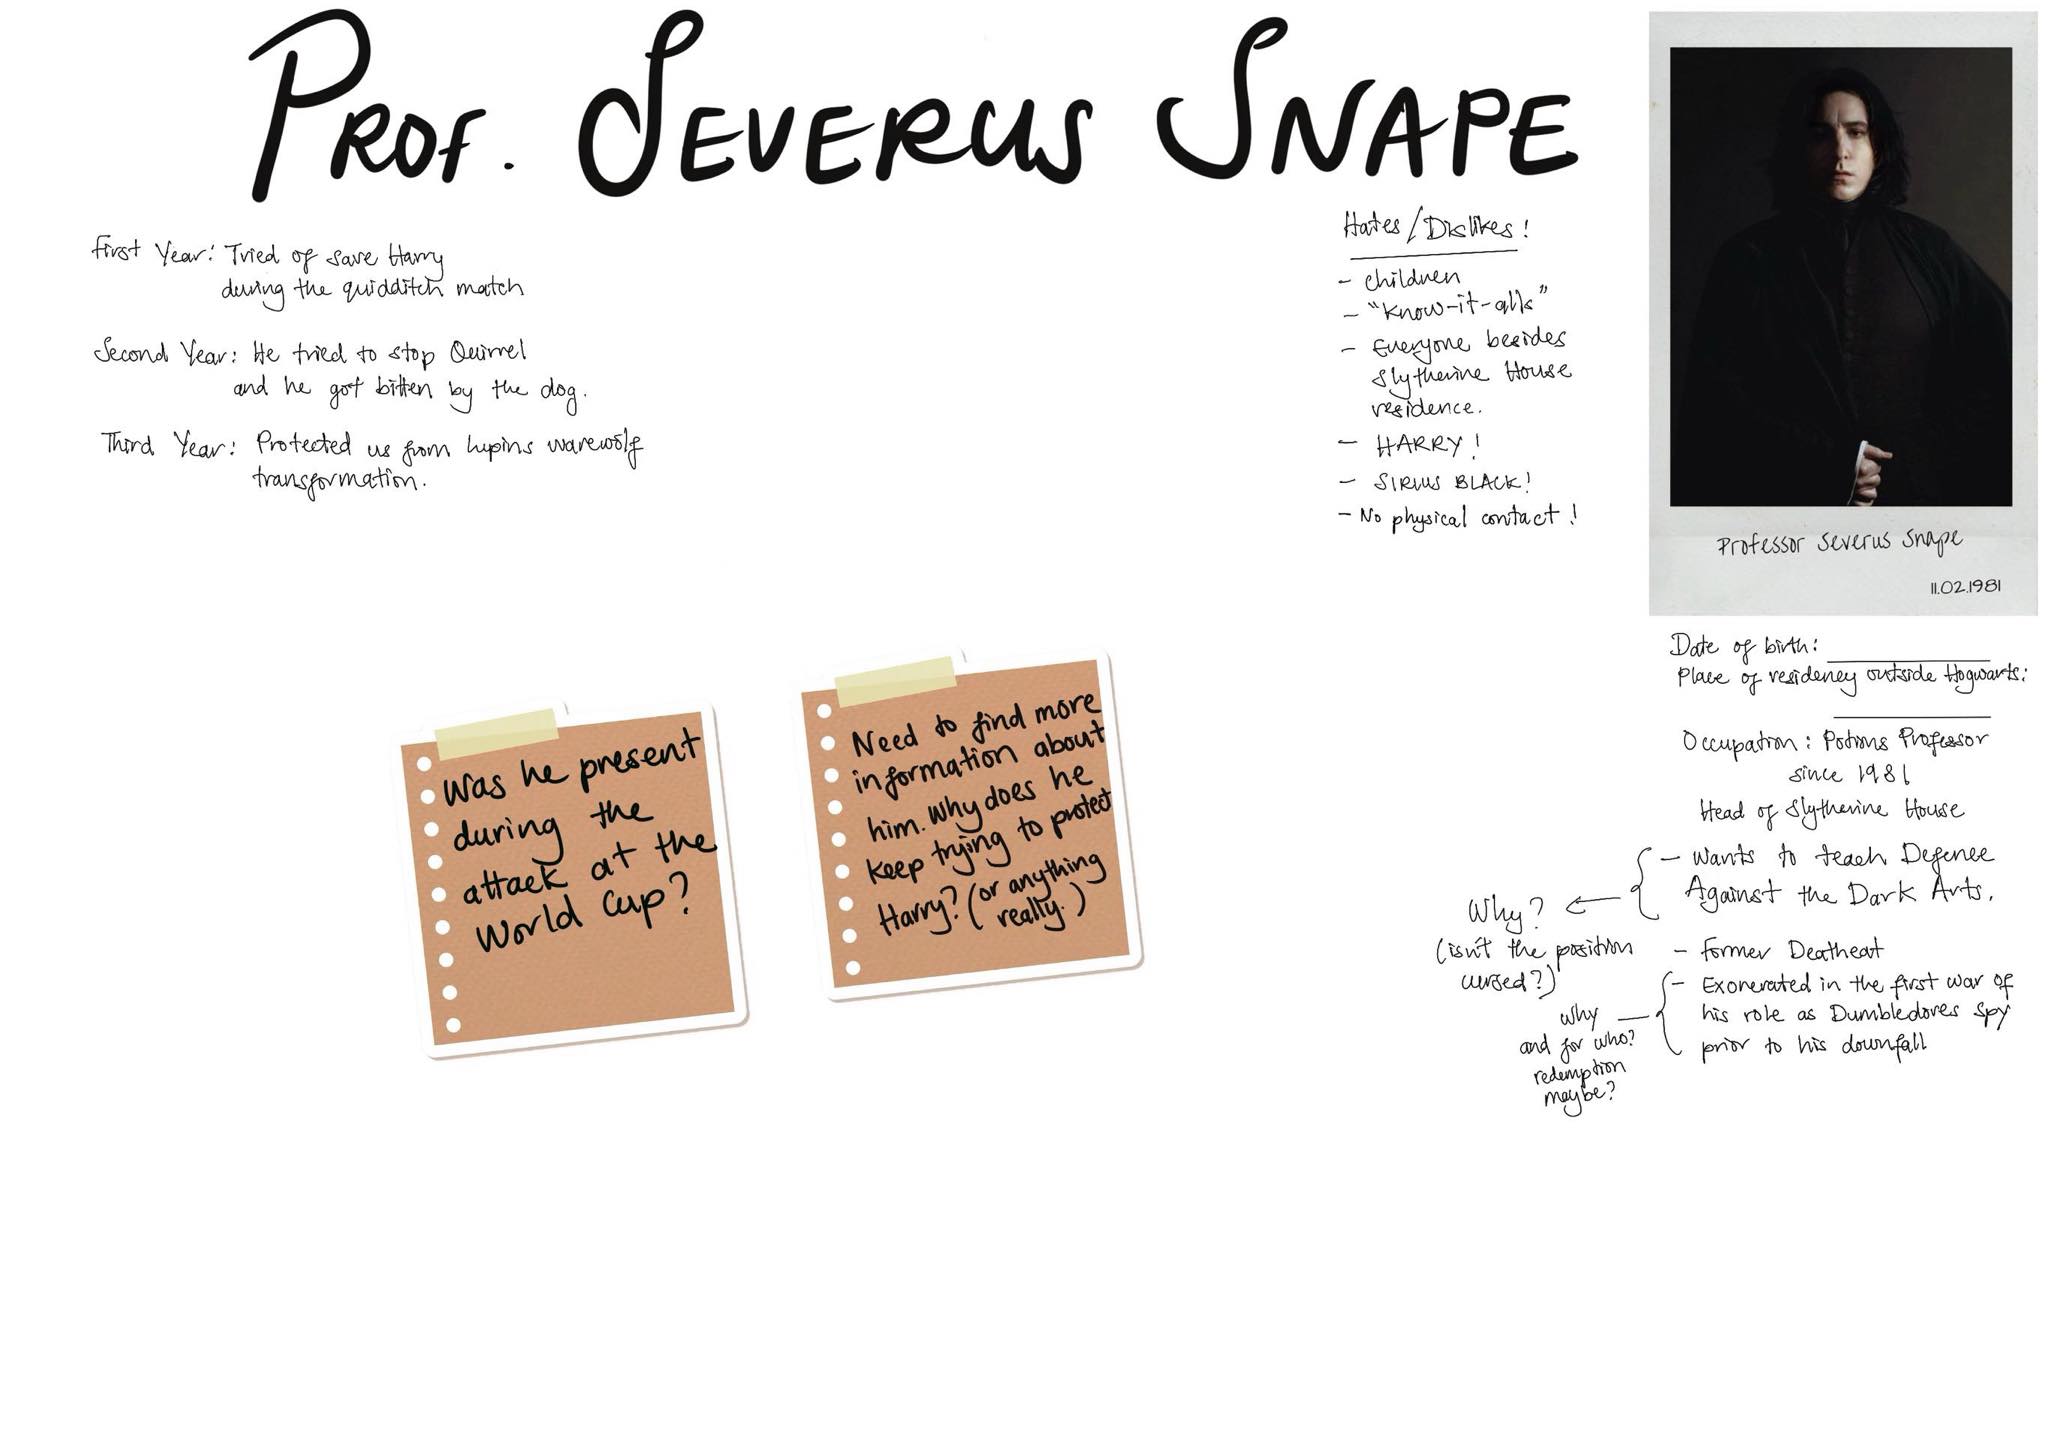 PROF. SEVERUS SNAPE
First Year: Tried of save Harry
during the quidditch match
Second Year: He tried to stop Quirrel
and he got bitten by the dog.
Third Year: Protected us from lupins warewolf
transformation.
Hates/Dislikes!
- children
- "know-it-alls"
- Everyone besides
Slytherine House
residence.
- HARRY!
- SIRIUS BLACK!
- No physical contact!
Professor Severus Snape
11.02.1981
Was he present
during the
attack at the
World Cup?
Need to find more
information about
him. Why does he
keep trying to protect
Harry? (or anything
really.)
Date of birth:
Place of residency outside Hogwarts:
Occupation: Potions Professor
since 1981
Head of Slytherine House
- Wants to teach Defence
Against the Dark Arts.
Why?
(isn't the position
cursed?)
- Former Deatheat
- Exonerated in the first war of
his role as Dumbledores spy
prior to his downfall
why
and for who?
redemption
maybe?